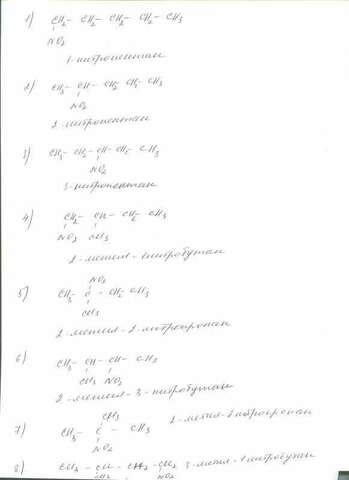 1) CH2 – CH2 – CH2 – CH2 – CH3
NO2
1-нитропентан
2) CH3 – CH – CH2 – CH2 – CH3
NO2
2-нитропентан
3) CH3 – CH2 – CH – CH2 – CH3
NO2
3-нитропентан
4) CH2 – CH – CH2 – CH3
NO2 CH3
2-метил-1-нитробутан
NO2
5) CH3 – C – CH2 – CH3
CH3
2-метил-2-нитропропан
6) CH3 – CH – CH – CH3
CH3 NO2
2-метил-3-нитробутан
CH3 2-метил-2 нитропропан
7) CH3 – C – CH3
NO2
8) CH3 – CH – CH2 – CH2 3-метил-1 нитробутан
CH3 NO2